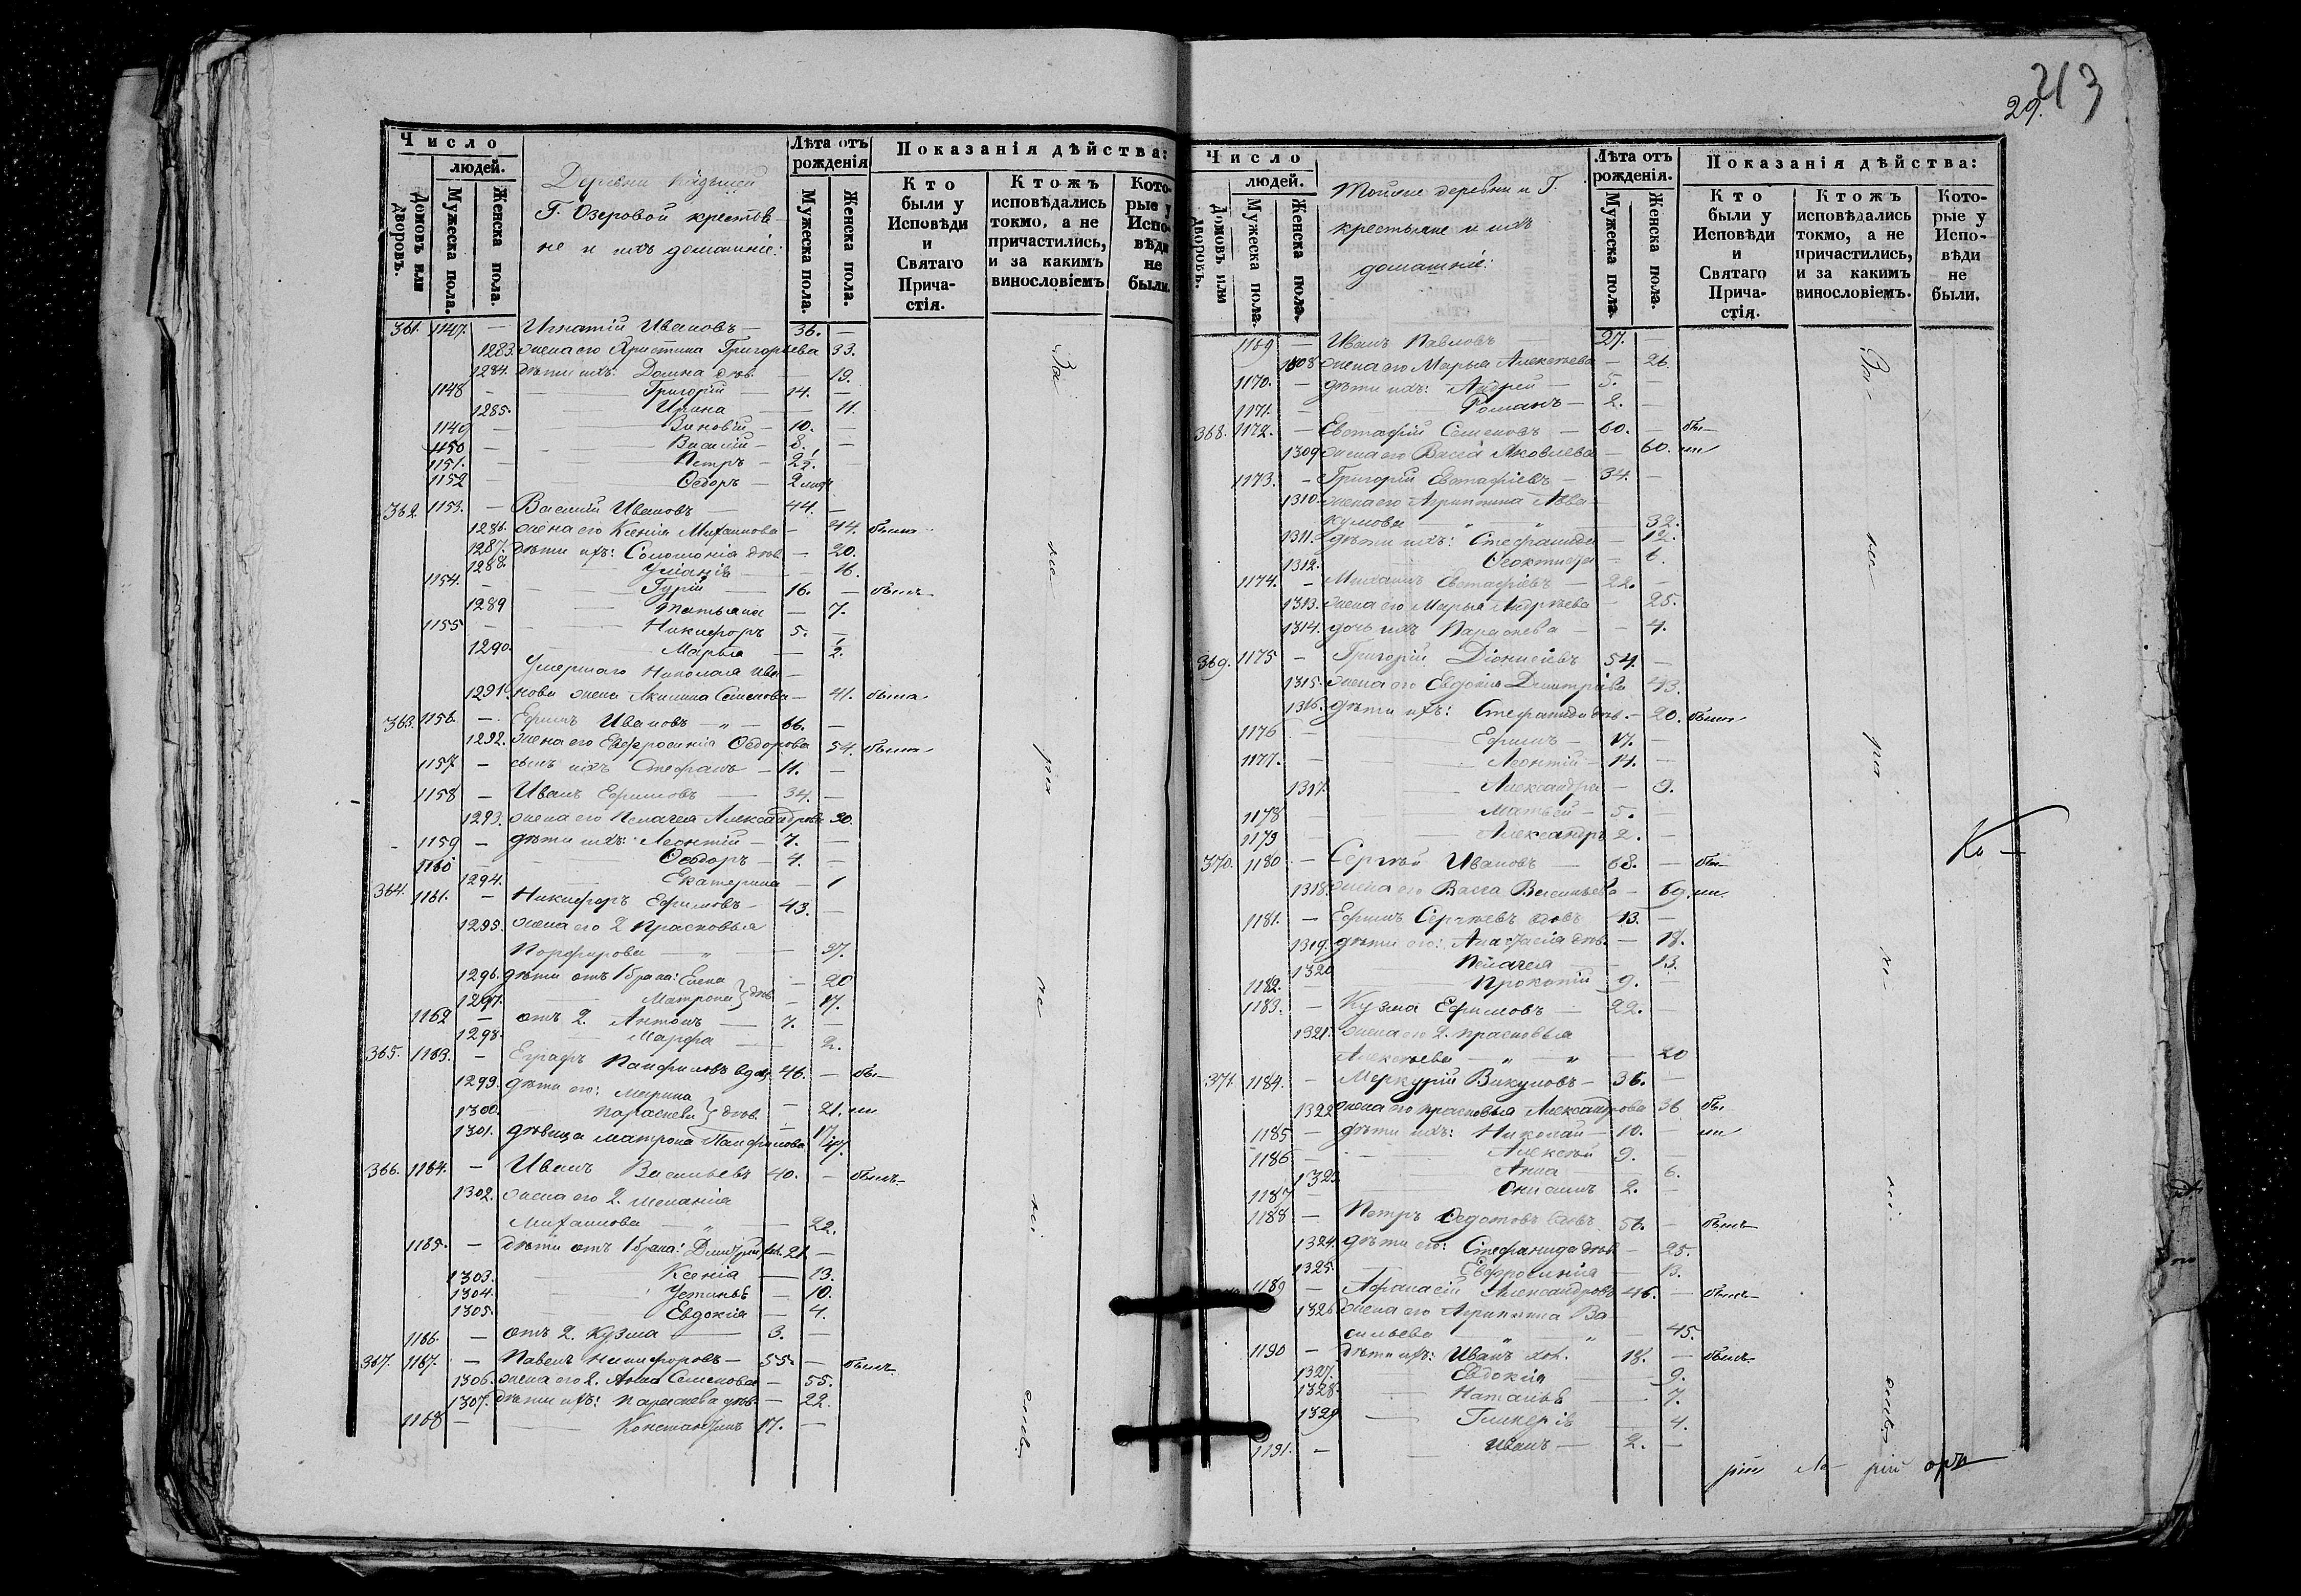 213
29.
Число
людей.
Домовъ или дворовъ.
Мужеска пола.
Женска пола.
Деревни
Г. Озеровой крестья-
не и ихъ домашніе:
Лѣта отъ рожденія
Мужеска пола.
Женска пола.
Показанія дѣйства:
Кто были у Исповѣди и Святаго Прича-стія.
Ктожъ исповѣдались токмо, а не причастились, и за какимъ винословіемъ
Кото-рые у Испо-вѣди не были.
361. 1147. — Игнатій Ивановъ — 36. —
1283. жена его Христина Григорьева 33.
1284. дѣти ихъ: Домна дѣв. — 19.
1148 — Григорій — 14. —
1285. Ирина — 11.
1149 — Зиновій — 10. —
1150 — Василій — 8. —
1151. — Петръ — 2½. —
1152 — Ѳедоръ — 2
362. 1153. — Василій Ивановъ — 44. —
1286. жена его Ксенія Михаилова — 44. была
1287. дѣти ихъ: Соломонія дѣв. — 20.
1288. — 16.
1154. — Гурій — 16. — былъ
1289 Татьяна — 7.
1155 — Никифоръ 5. —
1290. Марья — ½.
Умершаго Николая Ива-
1291. нова жена Акилина Семенова — 41. была
363. 1156. — Ефимъ Ивановъ — „ — 66. —
1292. жена его Евфросинія Ѳедорова 54. была
1157 — сынъ ихъ Стефанъ — 11. —
1158 — Иванъ Ефимовъ — 34. —
1293. жена его Пелагея Александрова 30.
1159 — дѣти ихъ: Леонтій — 7. —
1160 Ѳеодоръ — 4. —
1294. Екатерина — 1
364. 1161. — Никифоръ Ефимовъ — 43. —
1295. жена его 2 Прасковья
Порфирова — „ — 37.
1296. дѣти отъ 1 брака: Елена — 20
1297. Матрона } дѣв. — 17.
1162 — отъ 2. Антонъ — 7. —
1298. Марфа — 2.
365. 1163. — Евграфъ Панфиловъ вдов. 46. — бы—
1299. дѣти его: Марина
1300. Параскева } дѣв. — 21. ли
1301. дѣвица Матрона Панфилова 17 47.
366. 1164. — Иванъ Васильевъ 40. — былъ
1302. жена его 2. Меланія
Михаилова — „ — 22.
1165. — дѣти отъ 1 брака: Димитрій 21. —
1303. Ксенія — 13.
1304. Устинья — 10.
1305. Евдокія — 4.
1166. — отъ 2. Кузма — 3. —
367. 1167. — Павелъ Никифоровъ — 55. — былъ
1306. жена его 2. Анна Семенова — 55.
1307. дѣти ихъ: Параскева дѣв. — 22.
1168 — Константинъ 17. —
За
не
рa
не
ні
емъ
Число
людей.
Домовъ или дворовъ.
Мужеска пола.
Женска пола.
Тойже деревни и Г.
крестьяне и ихъ
домашніе:
Лѣта отъ рожденія.
Мужеска пола.
Женска пола.
Показанія дѣйства:
Кто были у Исповѣди и Святаго Прича-стія.
Ктожъ исповѣдались токмо, а не причастились, и за какимъ винословіемъ.
Кото-рые у Испо-вѣди не были.
1169 — Иванъ Павловъ — 27. —
1308 жена его Марья Алексѣева — 26.
1170. — дѣти ихъ: Андрей — 5. —
1171. — Романъ — 2. —
368. 1172. — Евстафій Семеновъ — 60. — бы—
1309 жена его Васса Яковлева — 60. ли
1173. — Григорій Евстафіевъ — 34. —
1310. жена его Агриппина Авва-
кумова „ „ — 32.
1311. дѣти ихъ: Стефанида — 12.
1312. Ѳеоктиста — 6.
1174. — Михаилъ Евстафіевъ — 22. —
1313. жена его Марья Андреева — 25.
1314. дочь ихъ Параскева — 4.
369. 1175 — Григорій Діонисіевъ 54. —
1315. жена его Евдокія Димитріева 43.
1316. дѣти ихъ: Стефанида дѣв. — 20. была
1176 — Ефимъ — 17. —
1177. — Леонтій — 14. —
1317. Александра — 9.
1178 — Матвей — 5. —
1179 — Александръ 2. —
370. 1180 — Сергѣй Ивановъ — 68. — бы—
1318. жена его Васса Васильева — 69. ли.
1181. — Ефимъ Сергѣевъ вдовъ 43. —
1319. дѣти его: Анастасія дѣв. — 18.
1320 Пелагея — 13.
1182. — Прокопій 9. —
1183. — Кузма Ефимовъ — 22. —
1321. жена его 2. Прасковья
Алексѣева — „ — „ — 20
371. 1184. — Меркурій Викуловъ — 36. —
1322 жена его Прасковья Александрова 36 бы
1185 — дѣти ихъ: Николай — 10. — ли
1186 — Алексѣй 9. —
1323. Анна — 6.
1187 — Онисимъ 2. —
1188 — Петръ Ѳедотовъ вдовъ 56. — былъ
1324. дѣти его: Стефанида дѣв. — 25.
1325. Евфросинія — 13.
1189 — Афанасій Александровъ 46. — былъ
1326 жена его Агриппина Ва-
сильева „ „ — 45.
1190 — дѣти ихъ: Иванъ хол. 18. — былъ
1327. Евдокія — 9.
1328. Наталья — 7.
1329 Гликерія — 4.
1191. — Иванъ — 2. —